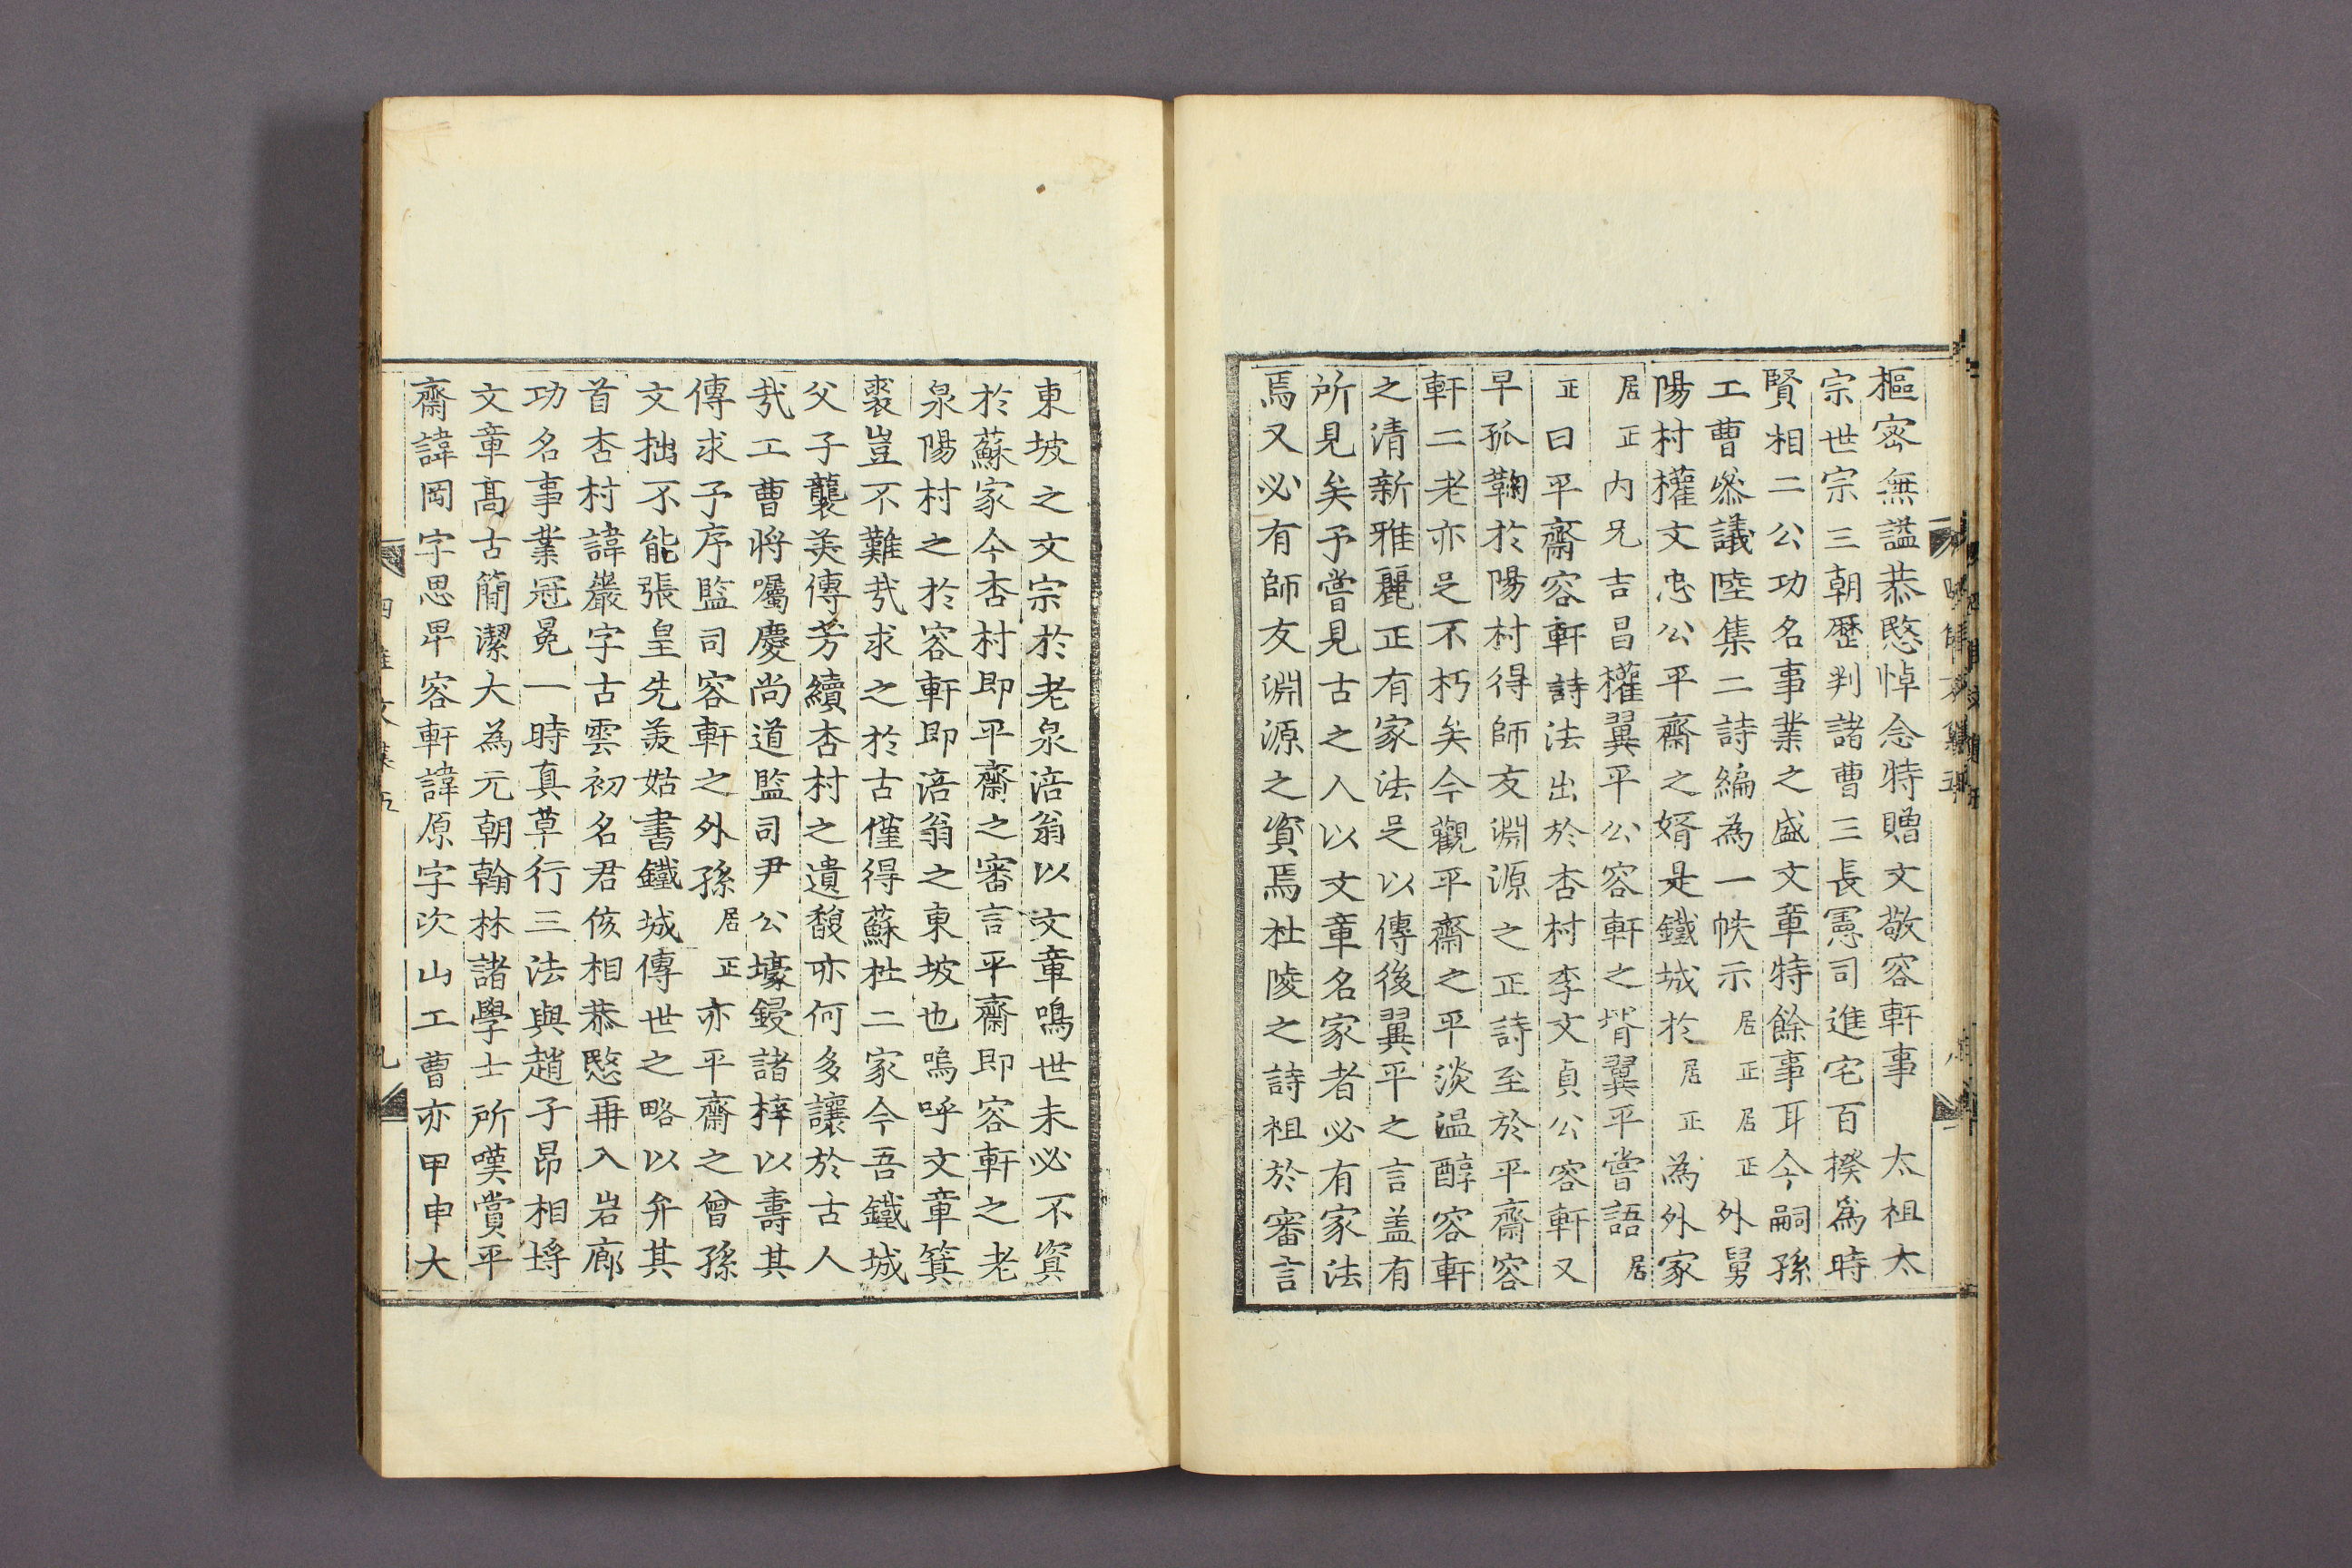 樞密無謚恭愍悼念特贈文敬容軒事 太祖太
宗世宗三朝歷判諸曹三長憲司進宅百揆爲時
賢相二公功名事業之盛文章特餘事耳今嗣孫
工曹叅議陸集二詩編為一帙示居正居正外舅
陽村權文忠公平齋之婿是鐵城於居正為外家
居正內兄吉昌權翼平公容軒之壻翼平嘗語居
正曰平齋容軒詩法出於杏村李文貞公容軒又
早孤鞠於陽村得師友淵源之正詩至於平齋容
軒二老亦足不朽矣今觀平齋之平淡溫醇容軒
之清新雅麗正有家法足以傳後翼平之言盖有
所見矣予嘗見古之人以文章名家者必有家法
焉又必有師友淵源之資焉杜陵之詩祖於審言
東坡之文宗於老泉涪翁以文章鳴世未必不資
於蘇家今杏村即平齋之審言平齋即容軒之老
泉陽村之於容軒即涪翁之東坡也嗚呼文章箕
裘豈不難㦲求之於古僅得蘇杜二家今吾鐵城
父子襲美傳芳續杏村之遺馥亦何多讓於古人
㦲工曹將囑慶尚道監司尹公壕鋟諸梓以壽其
傳求予序監司容軒之外孫居正亦平齋之曾孫
文拙不能張皇先羙姑書鐵城傳世之略以弁其
首杏村諱嵒字古雲初名君侅相恭愍再入岩廊
功名事業冠冕一時真草行三法與趙子昂相埒
文章髙古簡潔大為元朝翰林諸學士所嘆賞平
齋諱岡字思卑容軒諱原字次山工曹亦甲申大
四佳文集 五
九